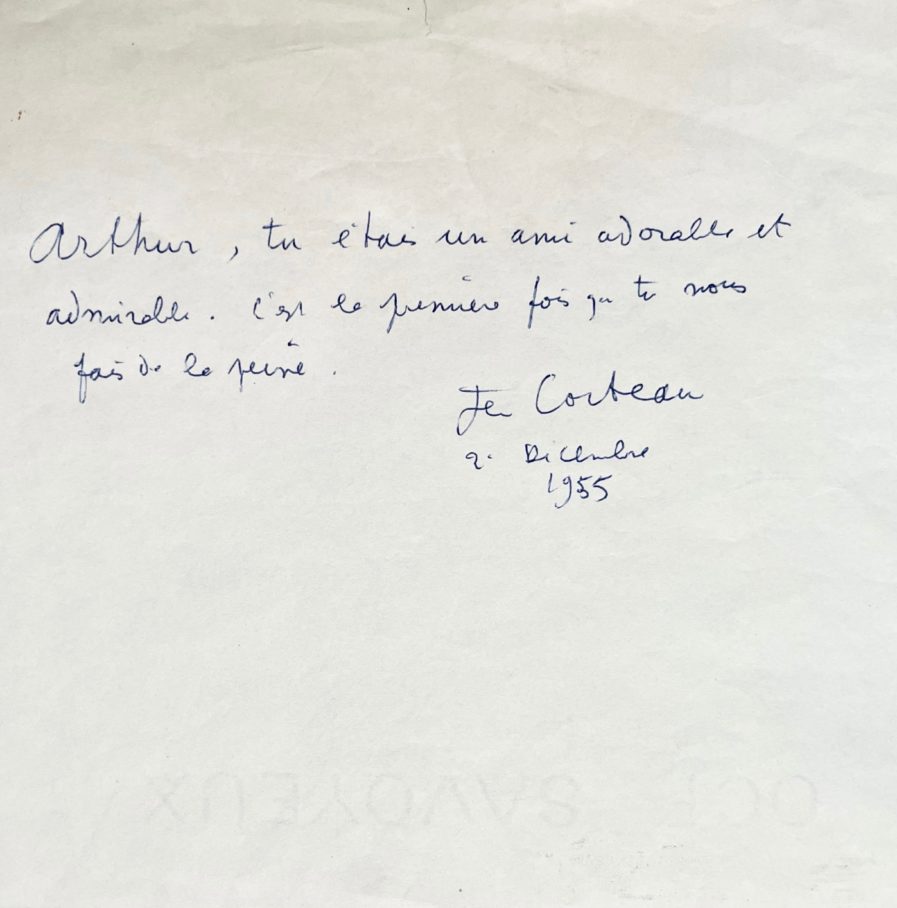 Arthur, tu étais un ami adorable et
admirable. C'est la première fois que tu nous
fais de la peine.
Jean Cocteau
2. Décembre
1955
SAVOYEUX